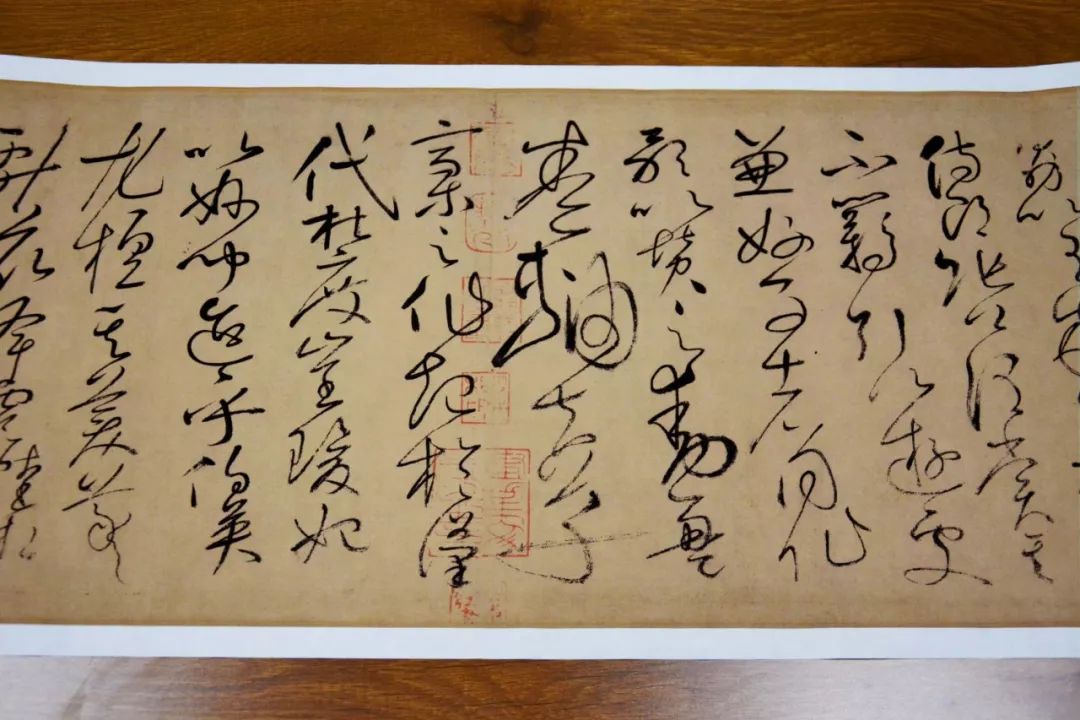 勗以有成
侍郎張公謂賞其
不羈引以遊處
兼好事者同作
歌以贊之動盈
卷軸夫草
稿之作起於漢
代杜度崔瑗始
以妙聞迨乎伯英
尤擅其美羲
獻茲降虞陸相